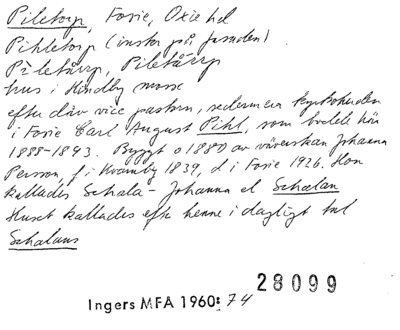 Piletorp, Fosie, Oxie hd
Pihletorp (instor på famolen)
Piletårp, Piletårp
hus i Hindby mosse
efter dåv vice pastorn, sedermera kyrkoherden
i Fosie Carl August Pihl, som bodde här
1888-1893. Byggt o 1880 av väverskan Johanna
Persson, f i Kvarnby 1839, d i Fosie 1926. Hon
kallades Schala-Johanna el Schalan
Huset kallades efter henne i dagligt tal
Schalans
28099
Ingers MFA 1960: 74